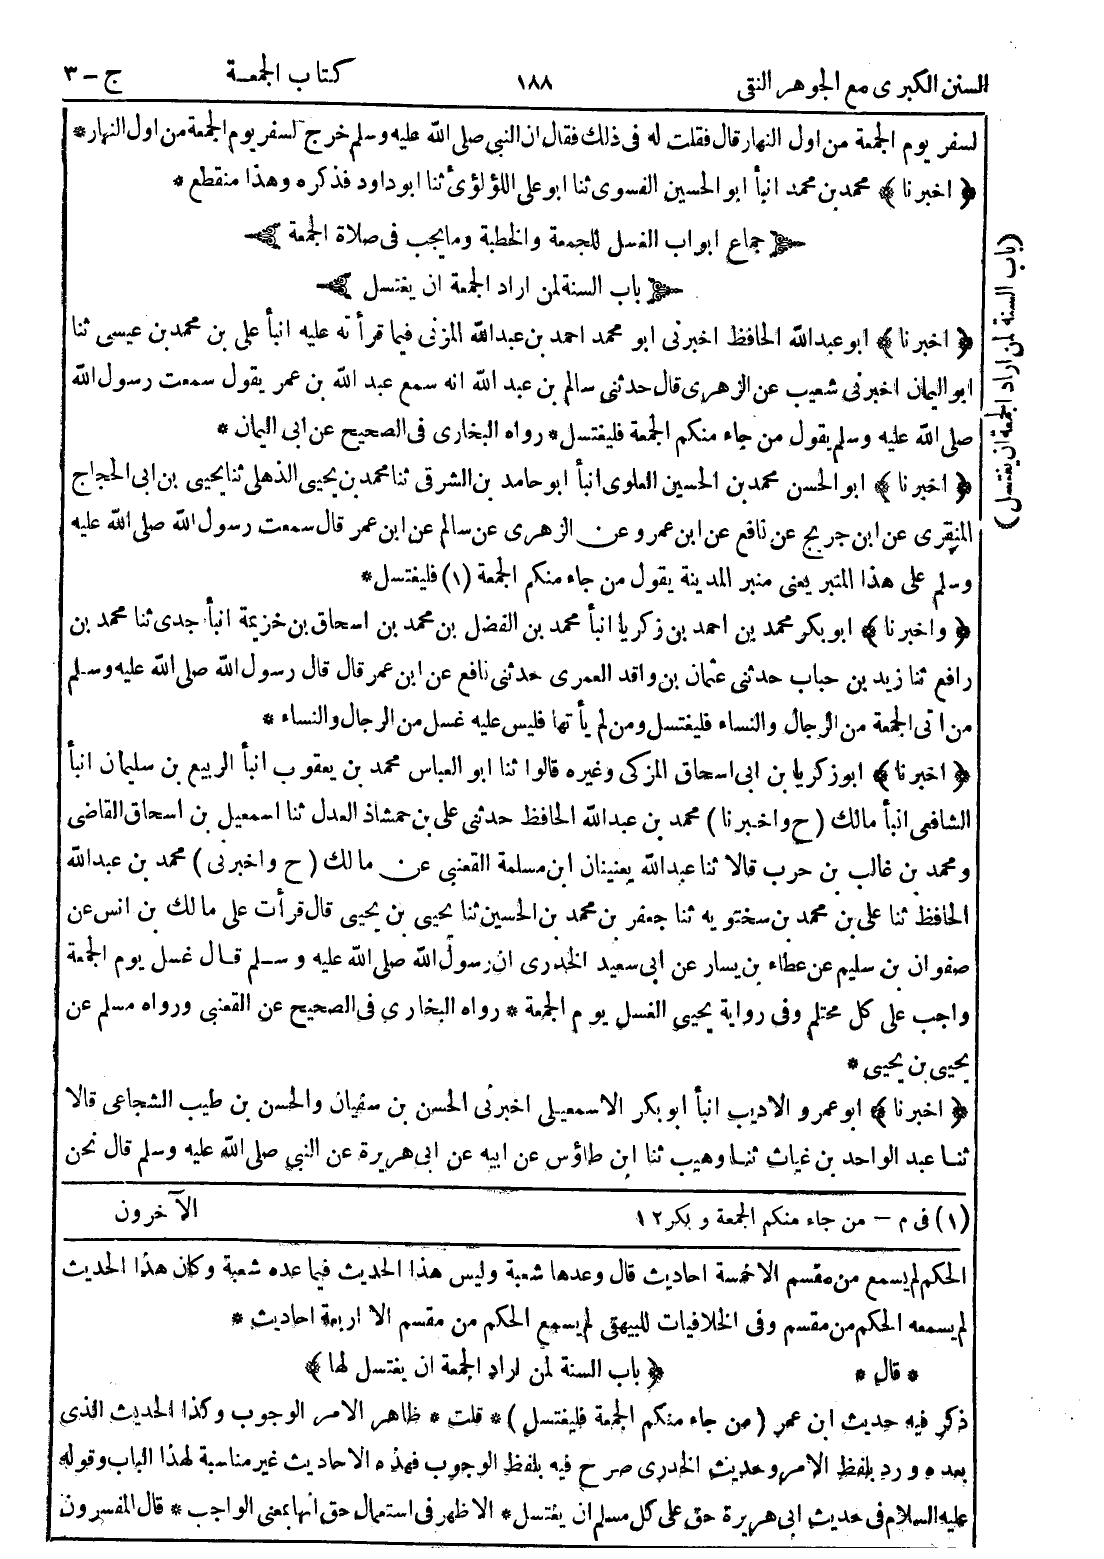 السنن الكبرى مع الجوهر النقى ١٨٨ كتاب الجمعة ج-٣
لسفر يوم الجمعة من اول النهار قال فقلت له فى ذلك فقال ان النبي صلى الله عليه وسلم خرج لسفر يوم الجمعة من اول النهار*
﴿ اخبرنا ﴾ محمد بن محمد انبأ ابو الحسين الفسوى ثنا ابو على اللؤلؤى ثنا ابو داود فذكره وهذا منقطع *
جماع ابواب الغسل للجمعة والخطبة وما يجب فى صلاة الجمعة
باب السنة لمن اراد الجمعة ان يغتسل
(باب السنة لمن اراد الجمعة ان يغتسل)
﴿ اخبرنا ﴾ ابو عبدالله الحافظ اخبرنى ابو محمد احمد بن عبدالله المزنى فيما قرأته عليه انبأ على بن محمد بن عيسى ثنا
ابو اليمان اخبرنى شعيب عن الزهرى قال حدثنى سالم بن عبد الله انه سمع عبد الله بن عمر يقول سمعت رسول الله
صلى الله عليه وسلم يقول من جاء منكم الجمعة فليغتسل* رواه البخارى فى الصحيح عن ابى اليمان *
﴿ اخبرنا ﴾ ابو الحسن محمد بن الحسين العلوى انبأ ابو حامد بن الشرقى ثنا محمد بن يحيى الذهلى ثنا يحيى بن ابى الحجاج
المنقرى عن ابن جريج عن نافع عن ابن عمر وعن الزهرى عن سالم عن ابن عمر قال سمعت رسول الله صلى الله عليه
وسلم على هذا المنبر يعنى منبر المدينة يقول من جاء منكم الجمعة (١) فليغتسل*
﴿ واخبرنا ﴾ ابو بكر محمد بن احمد بن زكريا انبأ محمد بن الفضل بن محمد بن اسحاق بن خزيمة انبأ جدى ثنا محمد بن
رافع ثنا زيد بن حباب حدثنى عثمان بن واقد العمرى حدثنى نافع عن ابن عمر قال قال رسول الله صلى الله عليه وسلم
من اتى الجمعة من الرجال والنساء فليغتسل ومن لم يأتها فليس عليه غسل من الرجال والنساء *
﴿ اخبرنا ﴾ ابو زكريا بن ابى اسحاق المزكى وغيره قالوا ثنا ابو العباس محمد بن يعقوب انبأ الربيع بن سليمان انبأ
الشافعى انبأ مالك (ح واخبرنا) محمد بن عبدالله الحافظ حدثنى على بن حمشاذ العدل ثنا اسمعيل بن اسحاق القاضى
ومحمد بن غالب بن حرب قالا ثنا عبدالله يعنيان ابن مسلمة القعنبى عن مالك (ح واخبرنى) محمد بن عبدالله
الحافظ ثنا على بن محمد بن سختويه ثنا جعفر بن محمد بن الحسين ثنا يحيى بن يحيى قال قرأت على مالك بن انس عن
صفوان بن سليم عن عطاء بن يسار عن ابى سعيد الخدرى ان رسول الله صلى الله عليه وسلم قال غسل يوم الجمعة
واجب على كل محتلم وفى رواية يحيى الغسل يوم الجمعة * رواه البخارى فى الصحيح عن القعنبى ورواه مسلم عن
يحيى بن يحيى *
﴿ اخبرنا ﴾ ابو عمرو الاديب انبأ ابو بكر الاسمعيلى اخبرنى الحسن بن سفيان والحسن بن طيب الشجاعى قالا
ثنا عبد الواحد بن غياث ثنا وهيب ثنا ابن طاؤس عن ابيه عن ابى هريرة عن النبي صلى الله عليه وسلم قال نحن
الآخرون
(١) فى م – من جاء منكم الجمعة و بكر ١٢
الحكم لم يسمع من مقسم الاخمسة احاديث قال وعدها شعبة وليس هذا الحديث فيما عده شعبة وكان هذا الحديث
لم يسمعه الحكم من مقسم وفى الخلافيات للبيهقى لم يسمع الحكم من مقسم الا اربعة احاديث *
* قال * ﴿ باب السنة لمن اراد الجمعة ان يغتسل لها ﴾
ذكر فيه حديث ابن عمر (من جاء منكم الجمعة فليغتسل) * قلت * ظاهر الامر الوجوب وكذا الحديث الذى
بعده ورد بلفظ الامر وحديث الخدرى صرح فيه بلفظ الوجوب فهذه الاحاديث غير مناسبة لهذا الباب وقوله
عليه السلام فى حديث ابى هريرة حق على كل مسلم ان يغتسل* الاظهر فى استعمال حق انها بمعنى الواجب * قال المفسرون